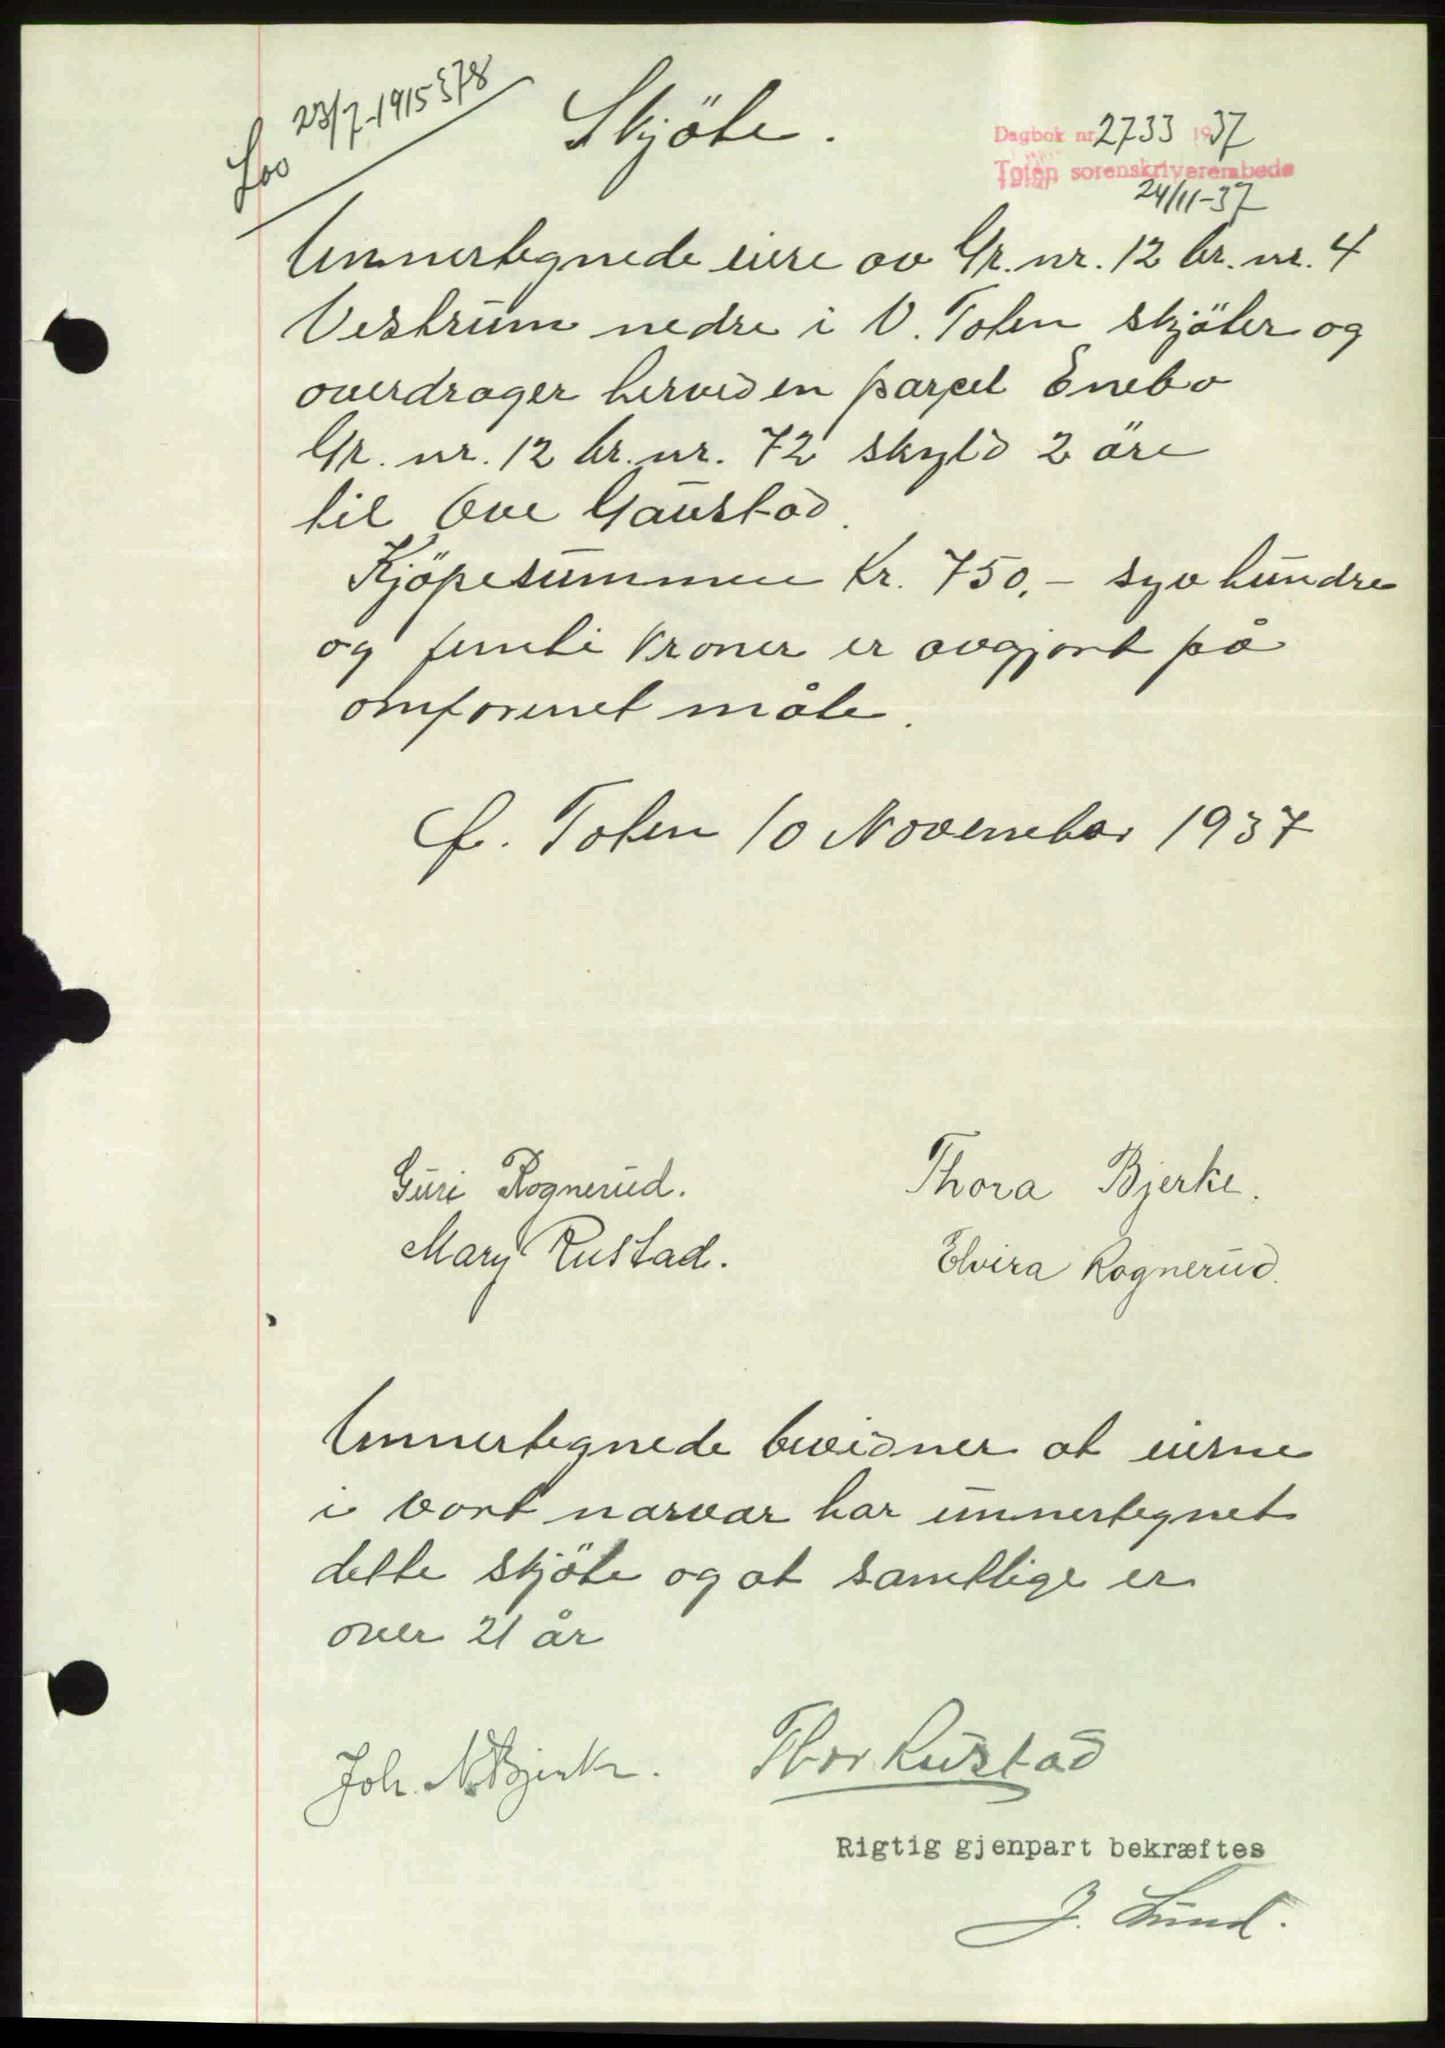 23/7-1915 578
Skjöte.
Dagbok nr. 2733 1937
Toten sorenskriverembede
24/11-37
Unnertegnede eiere av Gr. nr. 12 br. nr. 4
Vestrum nedre i V. Toten skjöter og
overdrager herved en parsel Enebo
Gr. nr. 12 br. nr. 72 skyld 2 öre
til Ove Gaustad.
Kjöpesummen Kr. 750,- syv hundre
og femti kroner er avgjort på
omforenet måte.
Toten 10 November 1937
Guri Rognerud.
Thora Bjerke.
Mary Rustad.
Elvira Rognerud.
Unnertegnede bevidner at eierne
i vort narvar har unnertegnet
dette skjöte og at samtlige er
over 21 år
Joh. N. Bjerke.
Thor Rustad
Rigtig gjenpart bekræftes
J. Lund.